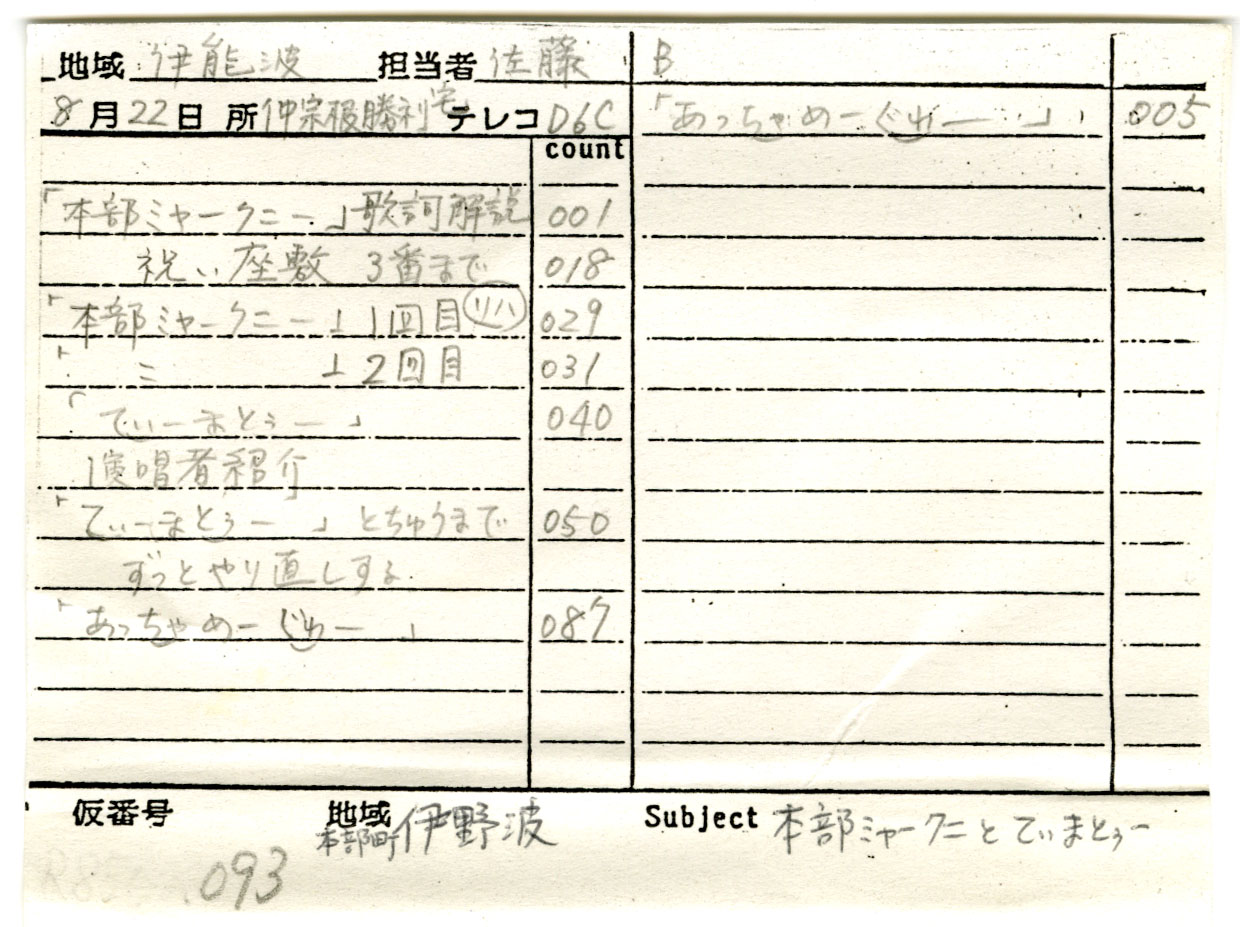 地域 伊能波 担当者 佐藤
8月22日 所 仲宗根勝利宅 テレコ D6C
count
「本部ミャークニー」歌詞解説 001
祝い座敷 3番まで 018
「本部ミャークニー」1回目 リハ 029
「 〃 」2回目 031
「てぃーまとぅー」 040
演唱者紹介
「てぃーまとぅー」とちゅうまで 050
ずっとやり直しする
「あっちゃめーぐゎー」 087
B
「あっちゃめーぐゎー」 005
仮番号 093
地域 本部町 伊野波
Subject 本部ミャークニとてぃまとぅー